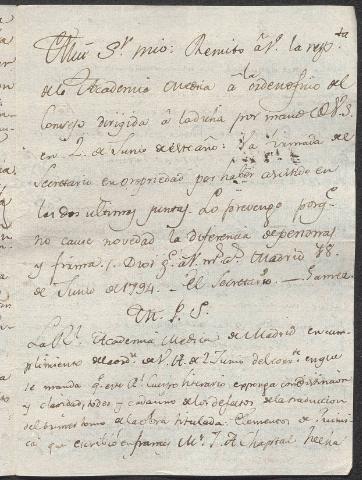 Mui Sr mio: Remito â V. la respta
de la Academia Medica â la orden del
Consejo dirigida â la dicha por mano de V.S.
en 2. de Junio de este año: va firmada del
Secretario en propiedad por haber asistido en
las dos ultimas juntas. Lo prevengo porq.
no cause novedad la diferencia de personas
y firma. Dios gue. â V. ms. as. Madrid 18.
de Junio de 1794. El Secretario.
M. P. S.
La Rl. Academia Medica de Madrid en cum
plimiento de la ordn. de V. A. de 2 Junio del corrte. en que
se manda q. este Rl. Cuerpo literario exponga con distincion
y claridad, todos y cada uno de los defectos de la traduccion
del primer tomo de la obra titulada. Elementos de Quimi
ca que escribió en frances Mr. J. A. Chaptal hecha